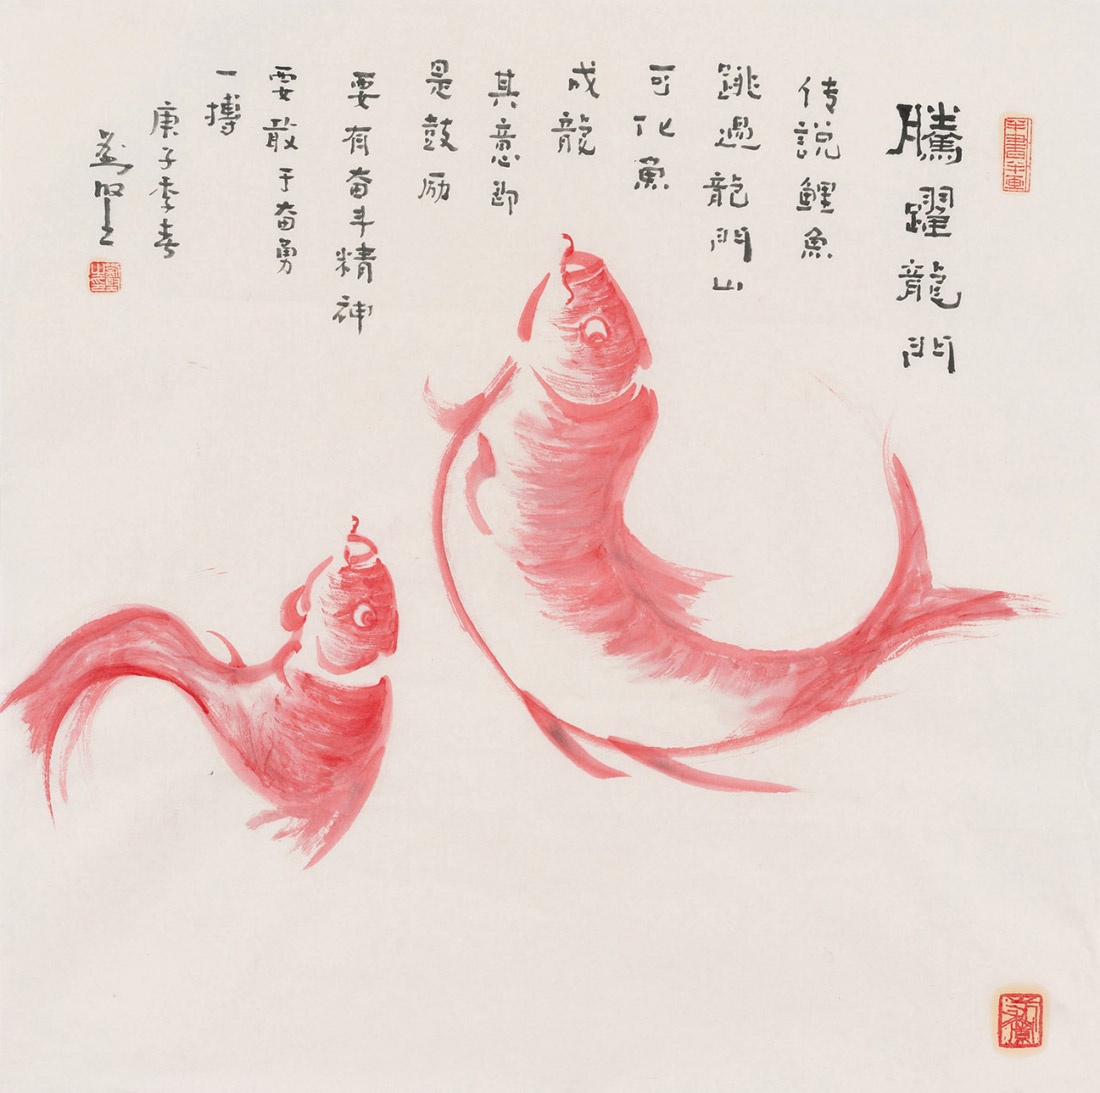 騰躍龍門
传説鯉魚
跳過龍門山
可化魚
成龍
其意即
是鼓励
要有奋斗精神
要敢于奋勇
一搏
庚子季春
半書半畫